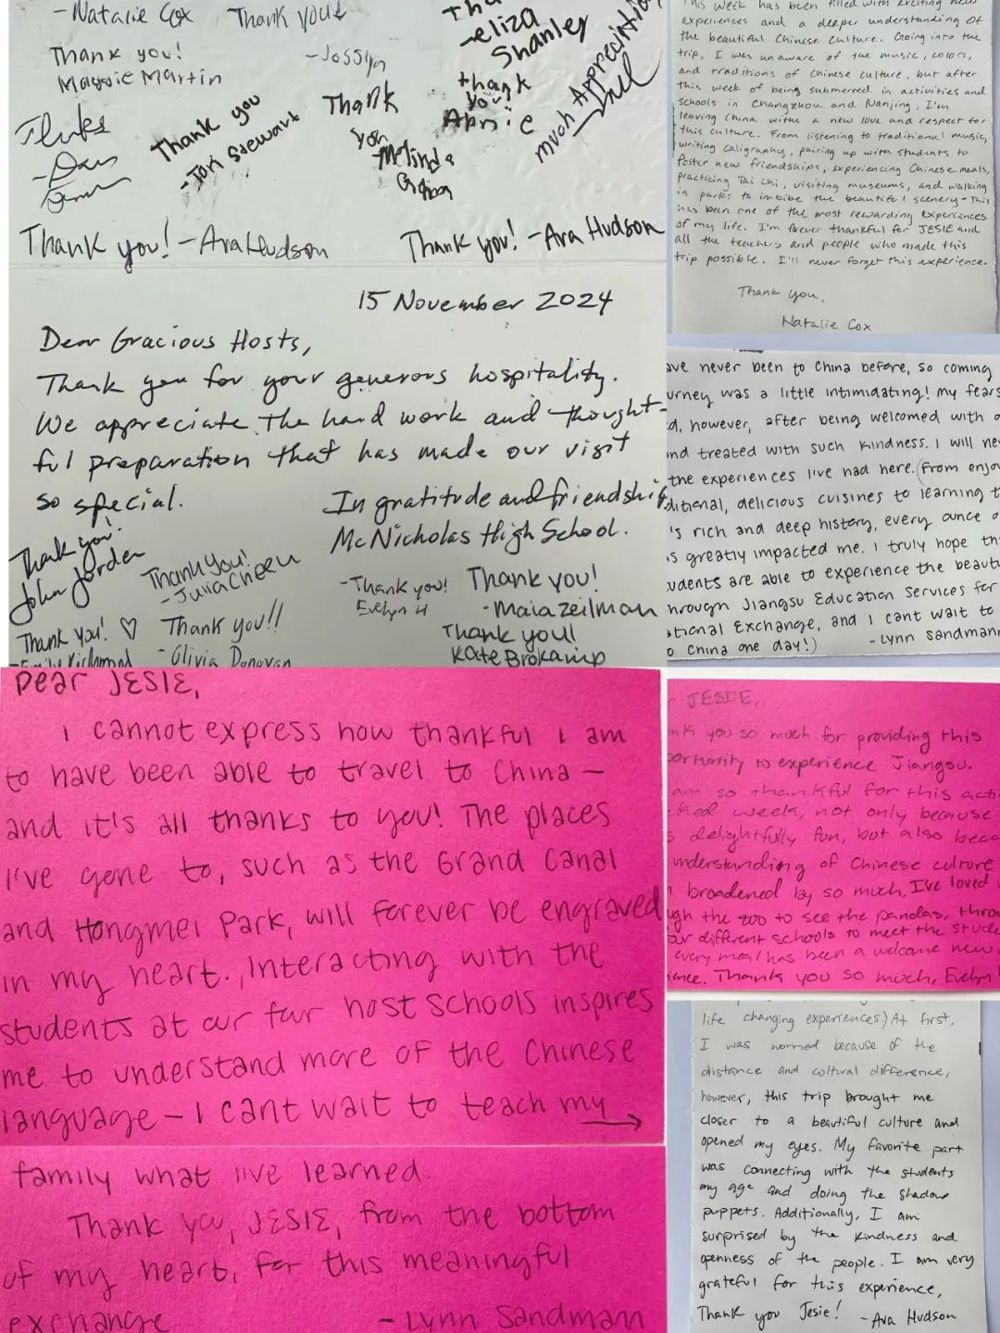 - Natalie Cox
Thank you!
Thank you!
Maggie Martin
- Josslyn
- eliza
Shanley
Thank
you!
Thank you
- Tori Stewart
Thank
you
much Appreciation
Thank you! - Ava Hudson
Thank you! - Ava Hudson
15 November 2024
Dear Gracious Hosts,
Thank you for your generous hospitality.
We appreciate the hard work and thought-
ful preparation that has made our visit
so special.
In gratitude and friendship
McNicholas High School.
Thank you!
John Jorden
Thank you!
- Julia Cheeu
- Thank you!
Evelyn H
Thank you!
- Maia Zeilman
Thank you! ♡
Thank you!!
- Olivia Donovan
Thank you!
Kate Brokamp
This week has been filled with exciting new
experiences and a deeper understanding of
the beautiful Chinese culture. Going into the
trip, I was unaware of the music, colors,
and traditions of Chinese culture, but after
this week of being submerred in activities and
schools in Changzhou and Nanjing, I'm
leaving China withe a new love and respect for
this culture. From listening to traditional music,
writing caligraphy, pairing up with students to
foster new friendships, experiencing Chinese meals,
practicing Tai Chi, visiting museums, and walking
in parks to imbibe the beautiful scenery - this
has been one of the most rewarding experiences
of my life. I'm forever thankful for JESIE and
all the teachers and people who made this
trip possible. I'll never forget this experience.
Thank you,
Natalie Cox
ave never been to China before, so coming
urney was a little intimidating! my fears
d, however, after being welcomed with
and treated with such kindness. I will ne
the experiences I've had here. (From enjo
ditional, delicious cuisines to learning t
's rich and deep history, every ounce o
s greatly impacted me. I truly hope th
udents are able to experience the beaut
hrough Jiangsu Education Services for
ational Exchange, and I cant wait to
o China one day!) - Lynn Sandman
Dear JESIE,
I cannot express how thankful I am
to have been able to travel to China -
and it's all thanks to you! The places
I've gone to, such as the Grand Canal
and Hongmei Park, will forever be engraved
in my heart. Interacting with the
students at our four host schools inspires
me to understand more of the Chinese
language - I cant wait to teach my →
family what I've learned.
Thank you, JESIE, from the bottom
of my heart, for this meaningful
exchange - Lynn Sandmann
JESIE,
nk you so much for providing this
portunity to experience Jiangsu.
am so thankful for this acti
cked week, not only because
s delightfully fun, but also beca
understanding of Chinese culture
n broadened by so much. I've loved
ugh the zoo to see the pandas, throu
our different schools to meet the stude
every meal has been a welcome new
ience. Thank you so much, Evelyn
life changing experiences) At first,
I was worried because of the
distance and coltural difference,
however, this trip brought me
closer to a beautiful culture and
opened my eyes. My favorite part
was connecting with the students
my age and doing the shadow
puppets. Additionally, I am
surprised by the kindness and
openness of the people. I am very
grateful for this experience,
Thank you Jesie! - Ava Hudson